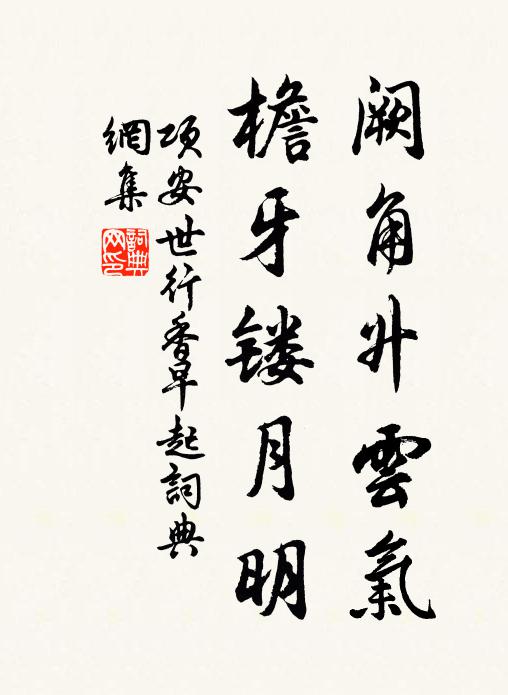 阙角升雲氣
檐牙镂月明
项安世行香早起詞典
網集
詞典網印